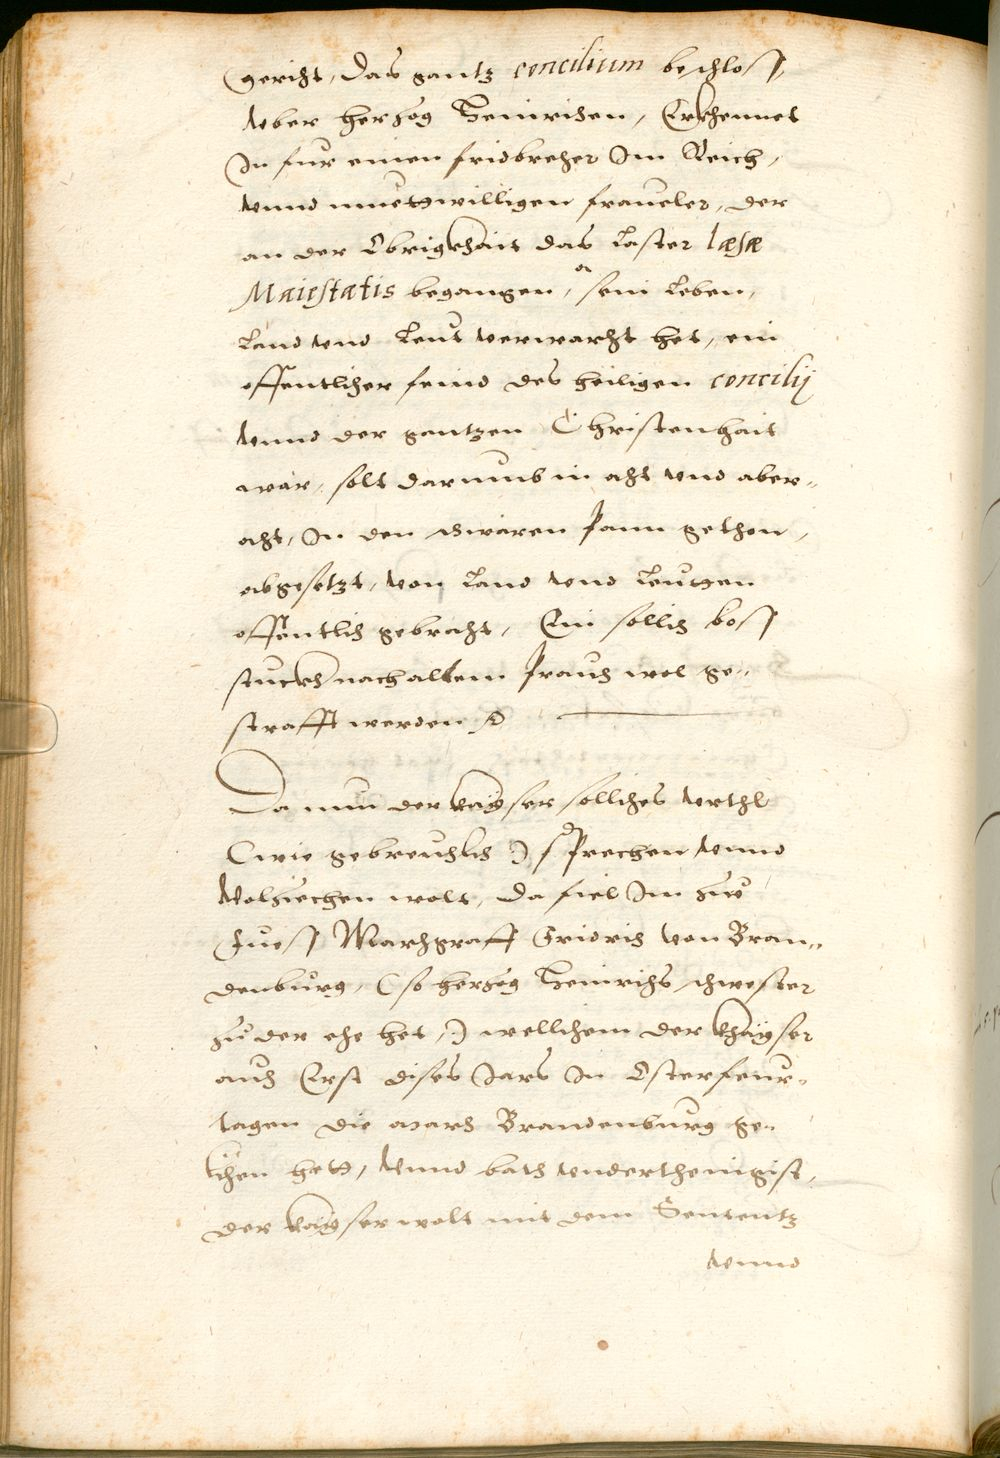 gericht, das gantz concilium beschloß,
vber hertzog Heinrichen, Erkhennet
In fur einen fridbrecher Im Reich,
vnnd muettwilligen fraueler, der
an der Obrigkhait das Laster læsæ
Maiestatis begangen, sein Leben,
Land vnd Leut verwürcht het, ein
offentlicher feind des heiligen concilij
vnnd der gantzen Christenhait
wär, solt darumb in acht vnd aber-
acht, In den schwären Pann gethon,
abgesetzt, von Land vnd Leutten
offentlich gebracht, Ein sollich boß
stuckh nach altem Prauch wol ge-
strafft werden
Da nun der kayser solliches vrthl
(wie gebreuchlich) sprechen vnnd
Volziechen wolt, Da fiel Im zuo
Fueß Marchgraff Fridrich von Bran-
denburg, (so hertzog Heinrichs schwester
zu der ehe het,) wellichem der Khayser
auch Erst dises Jars In Osterfeur-
tagen die March Brandenburg ge-
lichen hett, Vnnd bath vnderthenigist,
der kayser wolt mit dem Sententz
vnnd